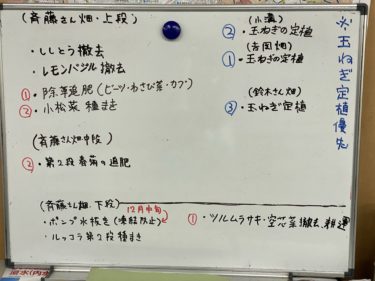 (斉藤さん畑・上段)
・ししとう撤去
・レモンバジル撤去
① ・除草追肥(ビーツ・わさび菜・カブ)
② ・小松菜 種まき
(斉藤さん畑中段)
② ・第2段春菊の追肥
(斉藤さん畑・下段)
12月中旬
・ポンプ水抜き(凍結防止)
・ルッコラ第2段種まき
(小溝)
② ・玉ねぎの定植
(吉岡畑)
① ・玉ねぎの定植
(鈴木さん畑)
③ ・玉ねぎ定植
① ・ツルムラサキ・空芯菜撤去、耕運
※玉ねぎ定植優先